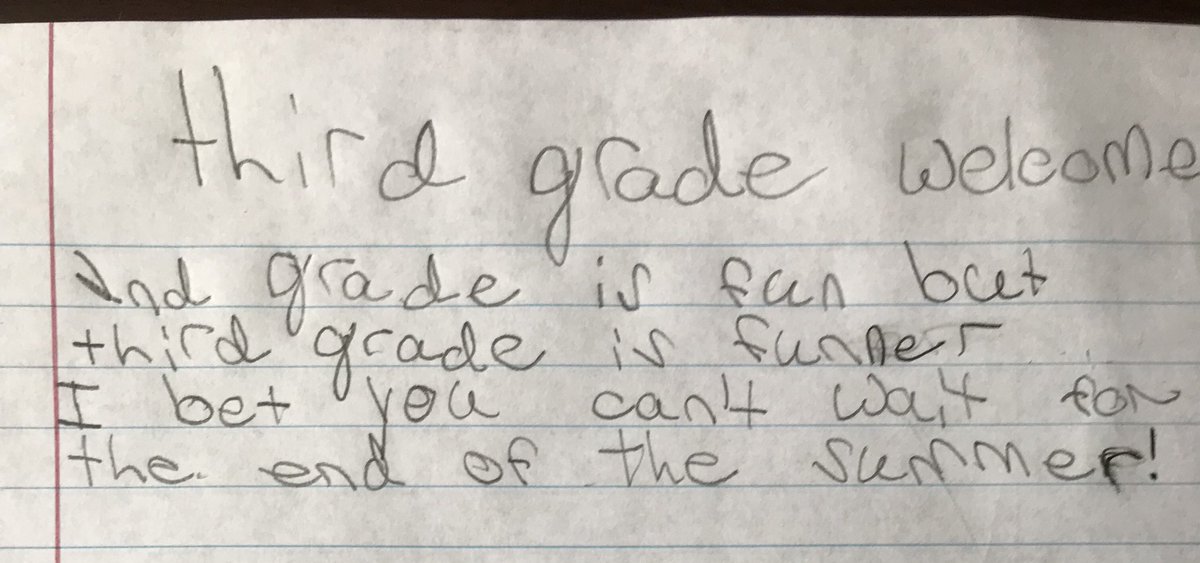 third grade welcome
2nd grade is fun but
third grade is funner
I bet you can't wait for
the end of the summer!